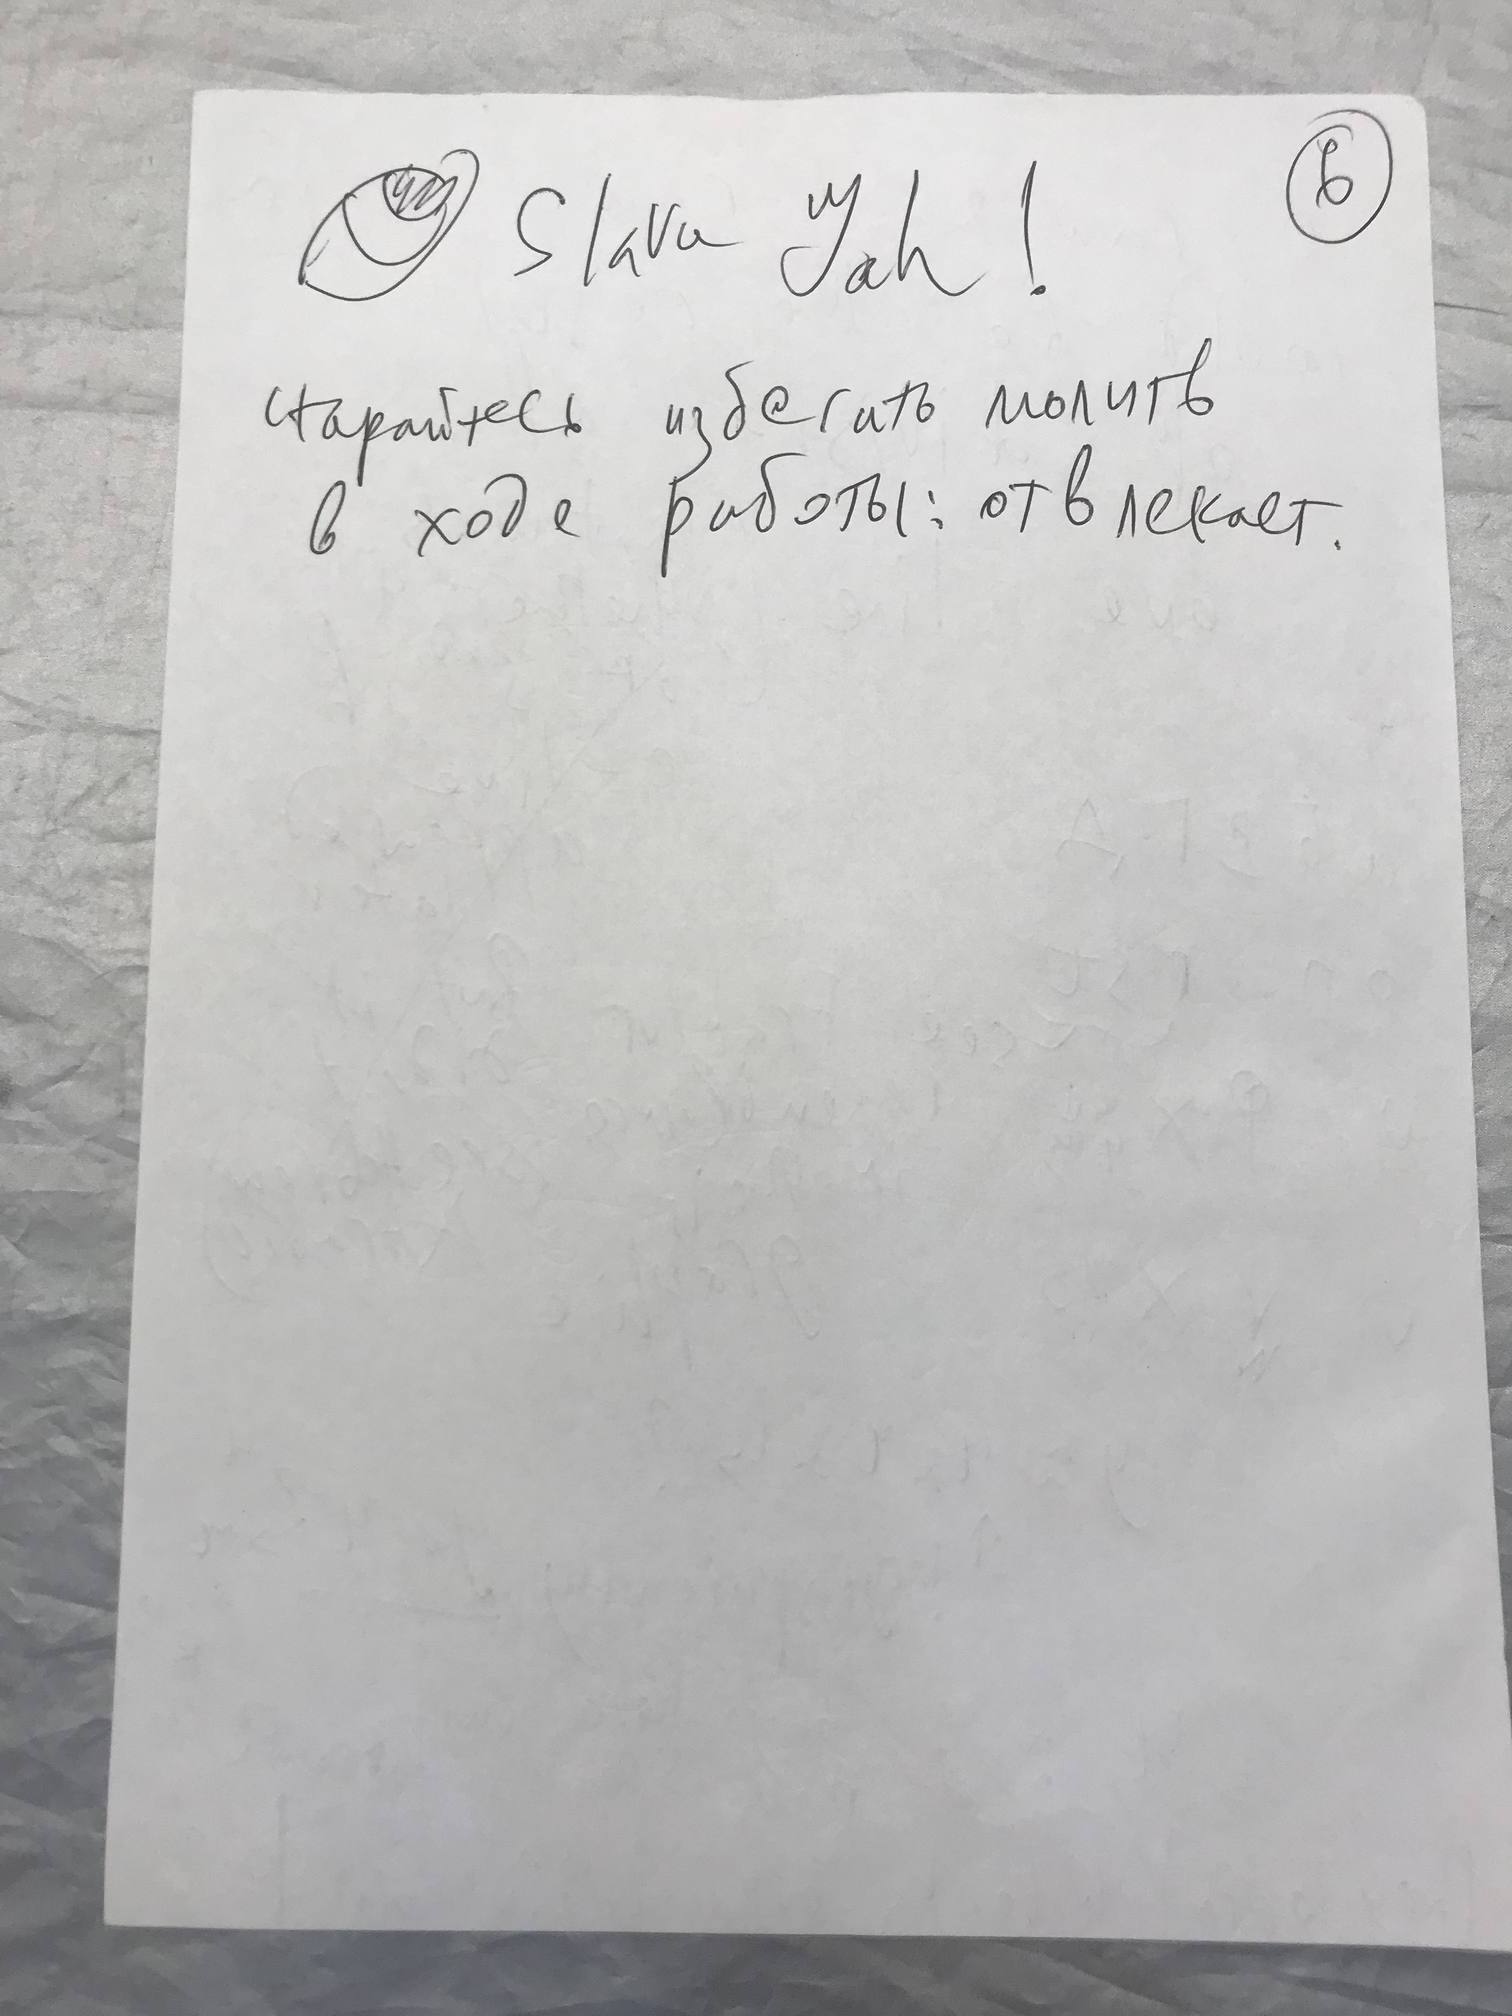 Slava Yah!
старайтесь избегать молитв
в ходе работы: отвлекает.